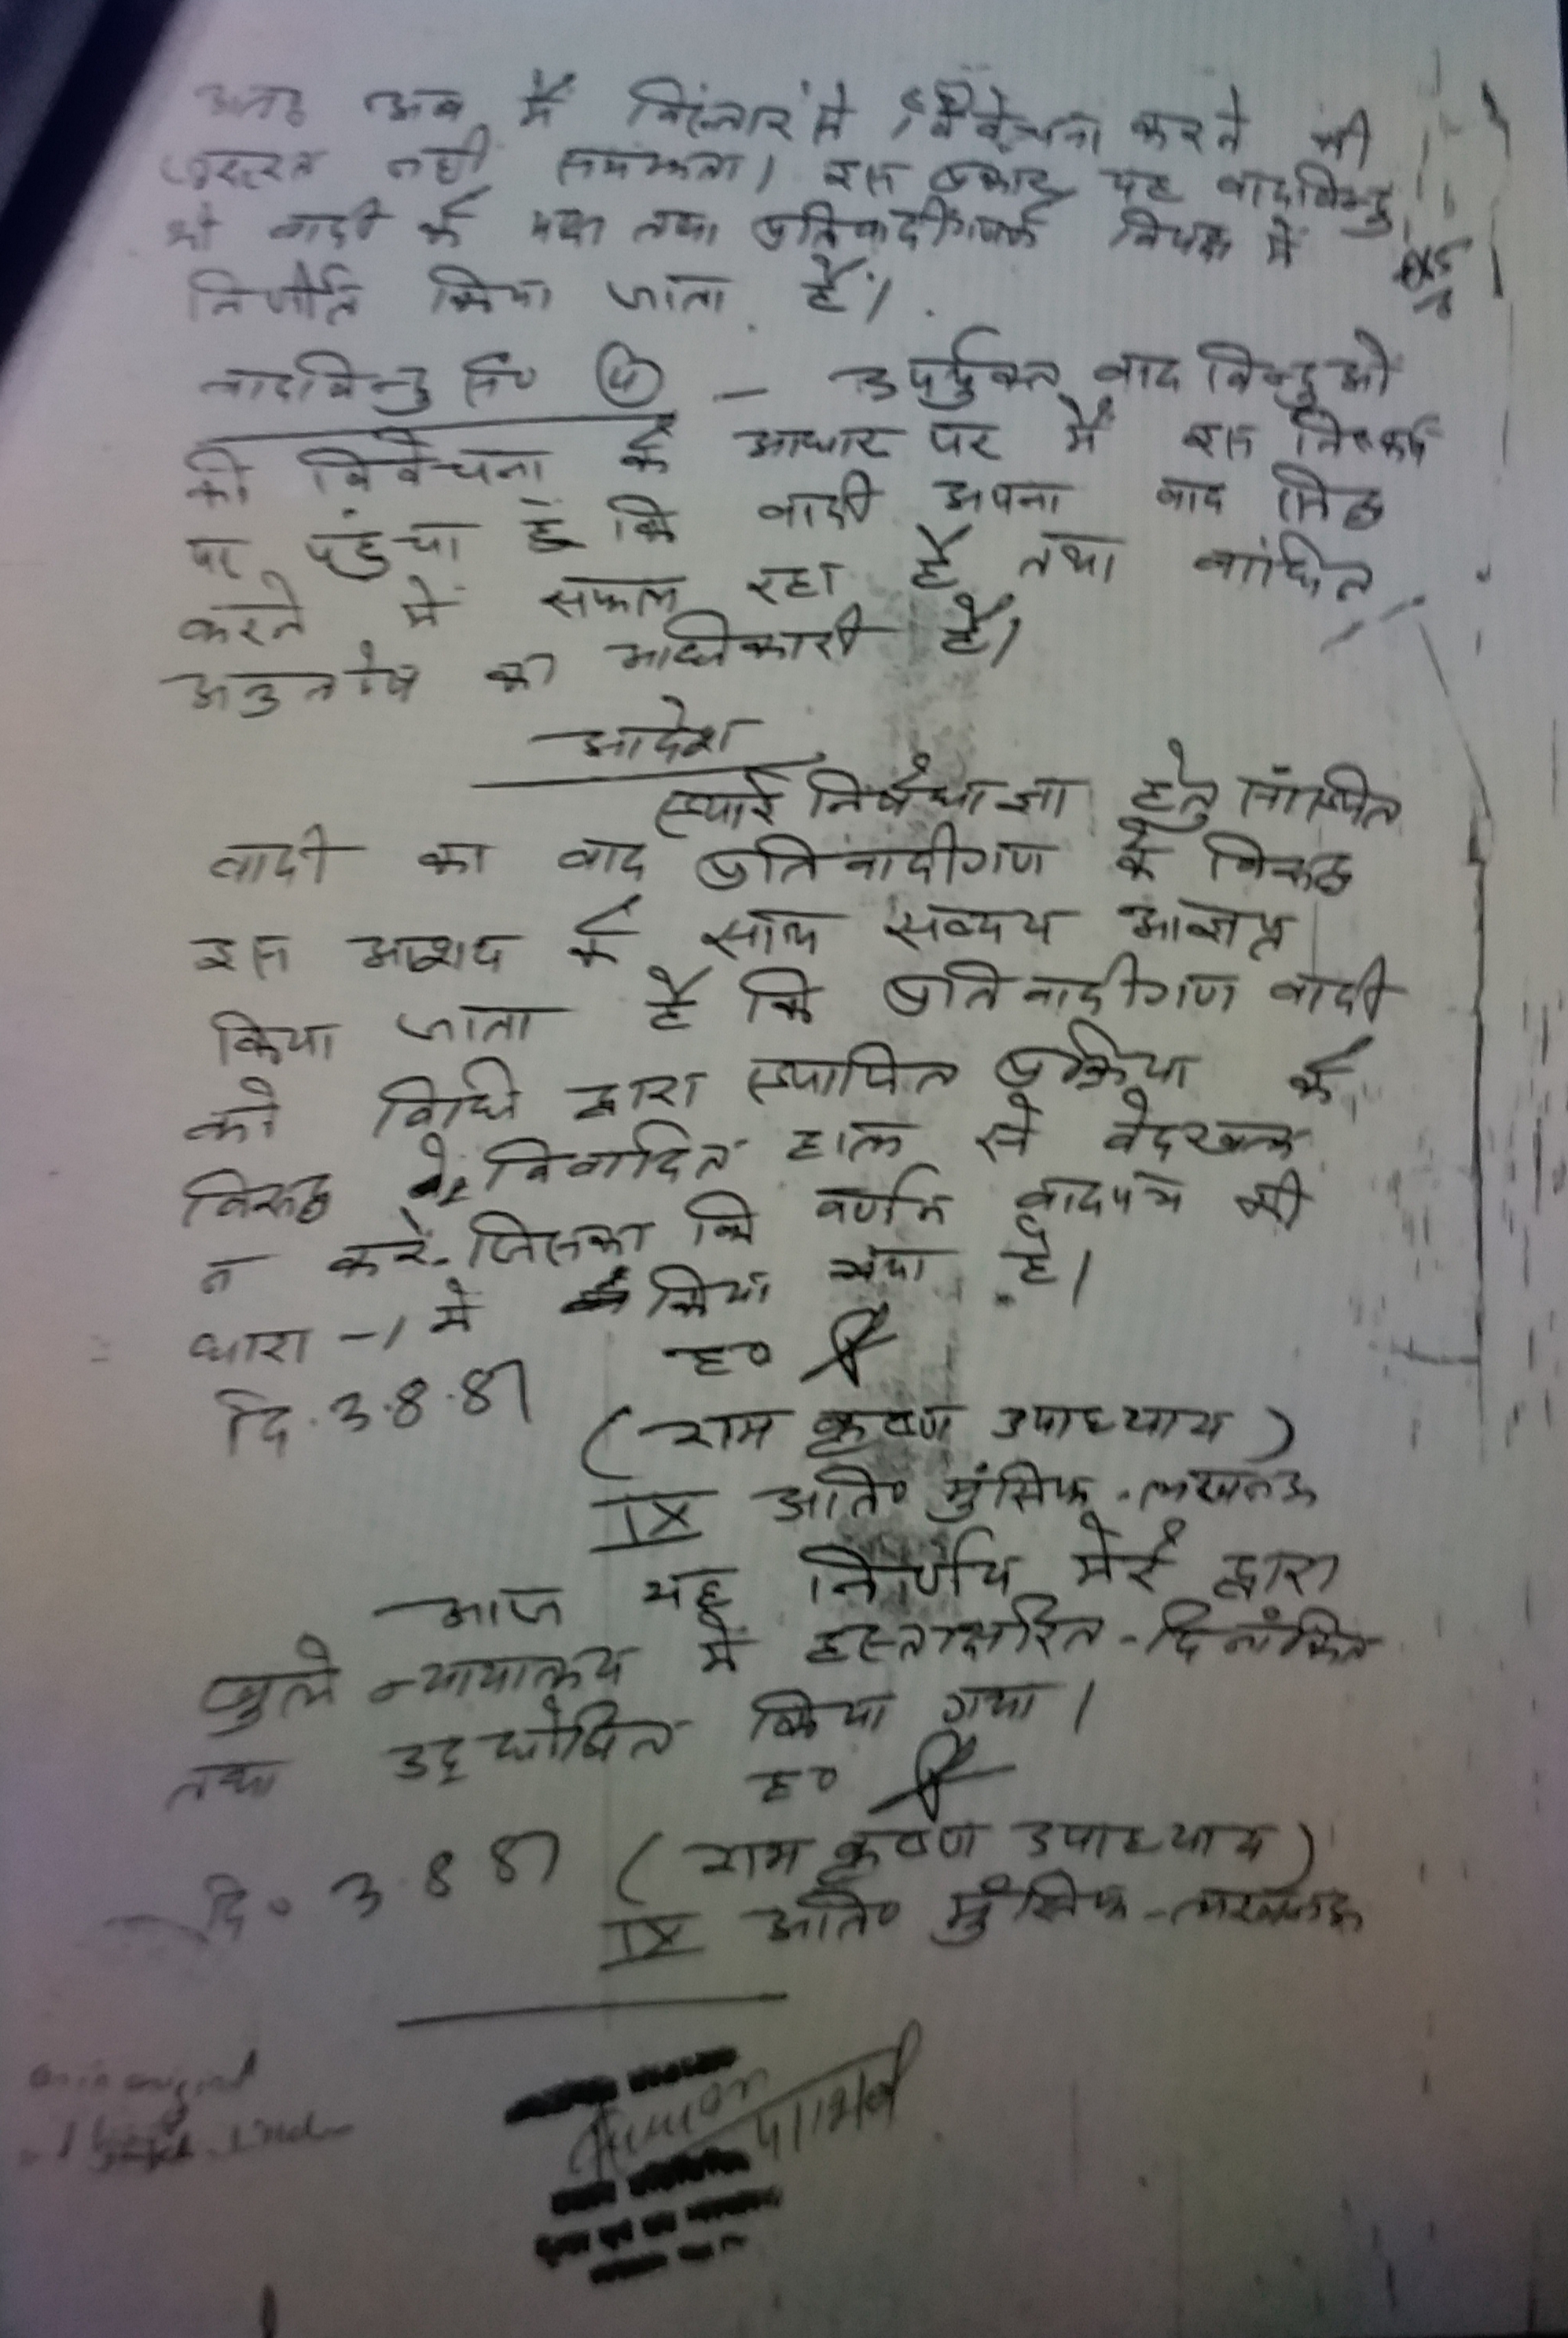 अतः अब मैं विस्तार में विवेचना करने की
जरूरत नहीं समझता। इस प्रकार यह वादविन्दु
भी वादी के पक्ष तथा प्रतिवादीगणके विपक्ष में
निर्णीत किया जाता है।
वादविन्दु सं०
— उपर्युक्त वाद विन्दुओ
की विवेचना के आधार पर मैं इस निष्कर्ष
पर पहुंचा हूँ कि वादी अपना वाद सिद्ध
करने में सफल रहा है तथा वांछित
अनुतोष का अधिकारी है।
आदेश
स्थाई निषेधाज्ञा हेतु संस्थित
वादी का वाद प्रतिवादीगण के विरूद्ध
इस आशय के साथ सव्यय आज्ञप्त
किया जाता है कि प्रतिवादीगण वादी
को विधि द्वारा स्थापित प्रक्रिया के
विरूद्ध विवादित हाल से वेदखल
न करें जिसका कि वर्णन वादपत्र की
धारा -1 में किया गया है।
ह०
दि. 3.8.87
(राम कृष्ण उपाध्याय)
IX अति० मुंसिफ - लखनऊ
आज यह निर्णय मेरे द्वारा
खुले न्यायालय में हस्ताक्षरित - दिनांकित
तथा उद्घोषित किया गया।
ह०
दि० 3.8.87 (राम कृष्ण उपाध्याय)
IX अति० मुंसिफ - लखनऊ